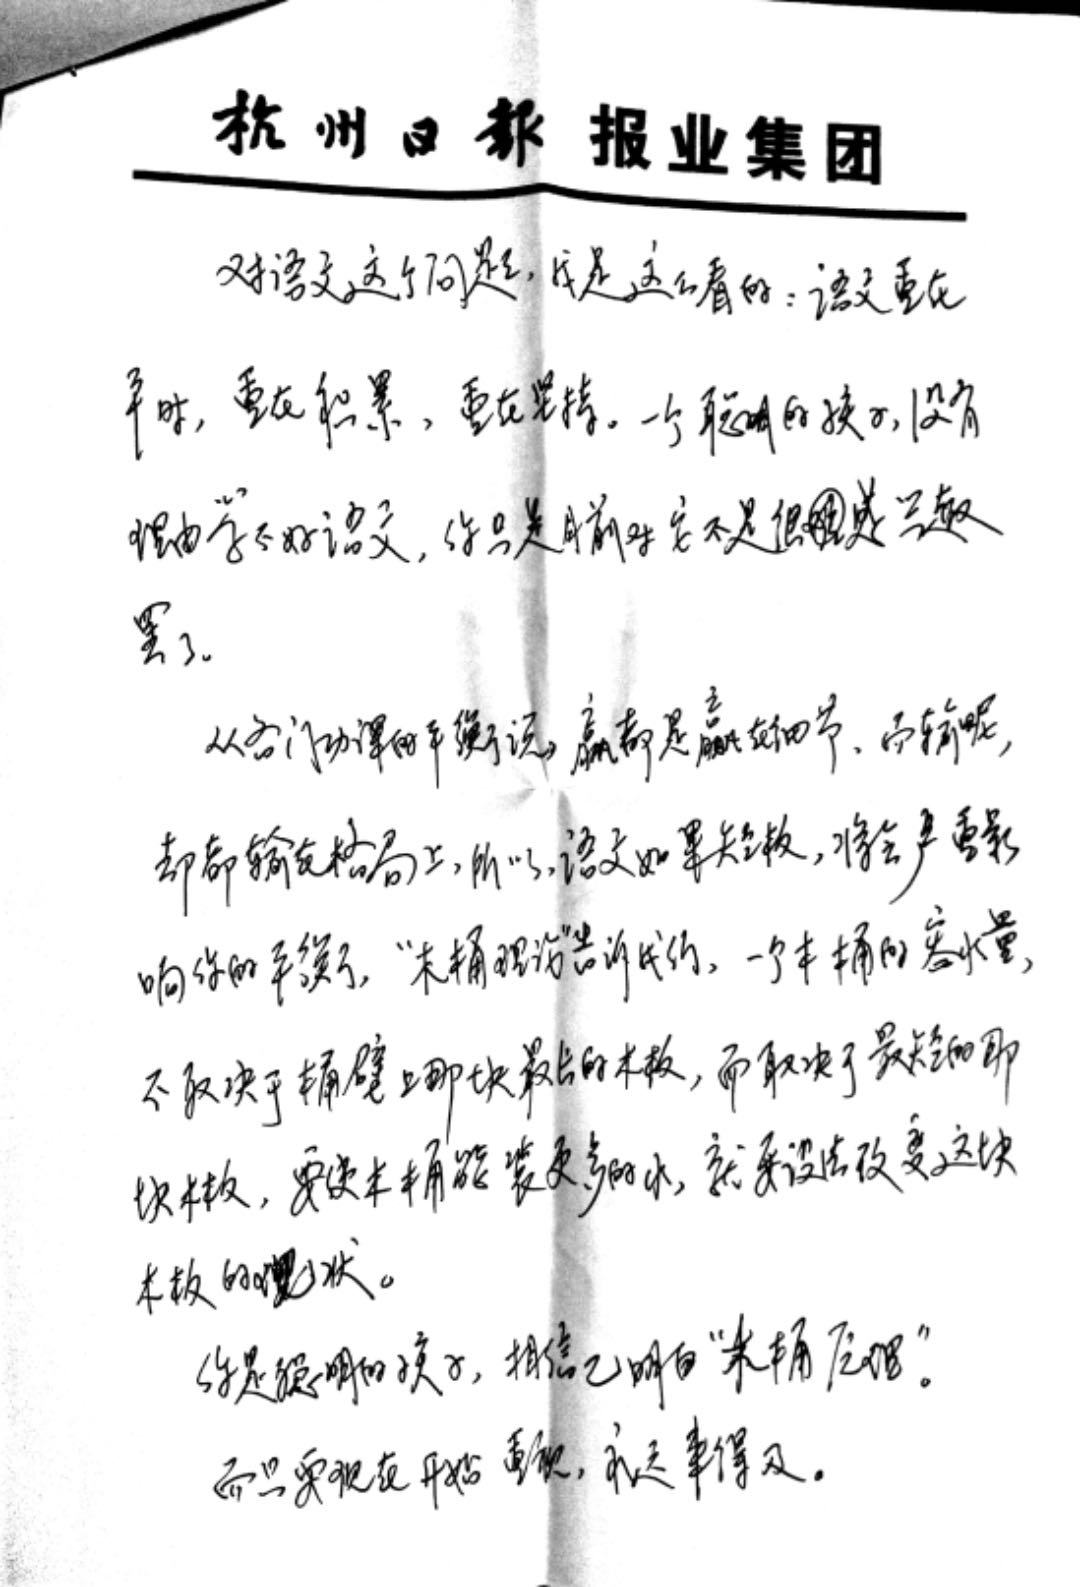 杭州日报 报业集团
对语文这个问题，我是这么看的：语文重在
平时，重在积累，重在坚持。一个聪明的孩子，没有
理由学不好语文，你只是目前对它不是很感兴趣
罢了。
从各门功课的平衡说，赢都是赢在细节、而输呢，
却都输在格局上，所以，语文如果短板，将会严重影
响你的平衡了，“木桶理论”告诉我们，一个木桶的容水量，
不取决于桶壁上那块最长的木板，而取决于最短的那
块木板，要使木桶能装更多的水，就要设法改变这块
木板的现状。
你是聪明的孩子，相信已明白“木桶原理”。
而只要现在开始重视，永远来得及。